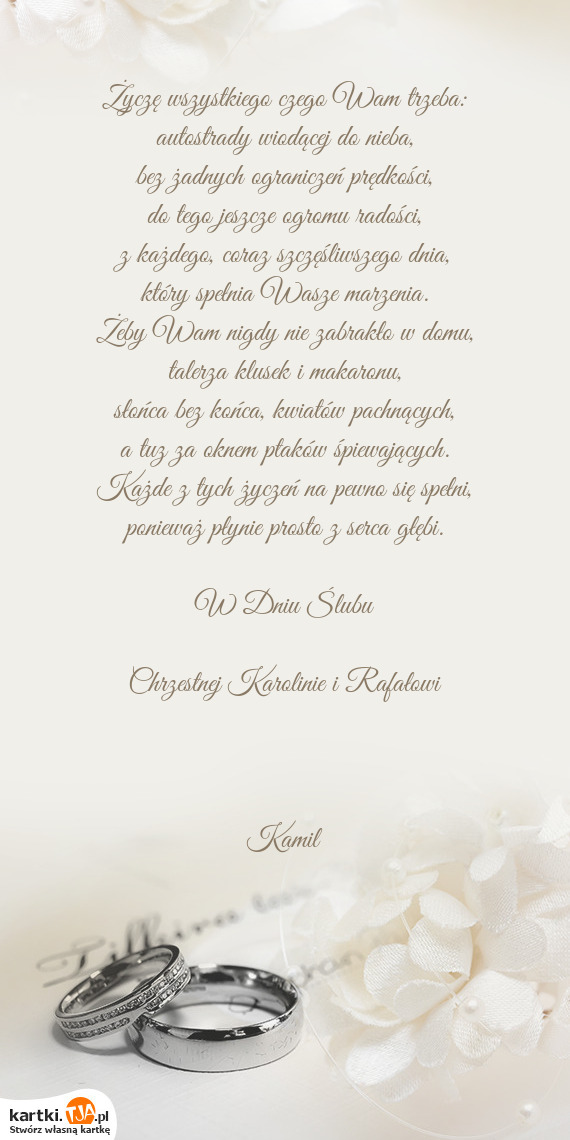 Życzę wszystkiego czego Wam trzeba:
autostrady wiodącej do nieba,
bez żadnych ograniczeń prędkości,
do tego jeszcze ogromu radości,
z każdego, coraz szczęśliwszego dnia,
który spełnia Wasze marzenia.
Żeby Wam nigdy nie zabrakło w domu,
talerza klusek i makaronu,
słońca bez końca, kwiatów pachnących,
a tuz za oknem ptaków śpiewających.
Każde z tych życzeń na pewno się spełni,
ponieważ płynie prosto z serca głębi.
W Dniu Ślubu
Chrzestnej Karolinie i Rafałowi
Kamil
kartki.TJA.pl
Stwórz własną kartkę